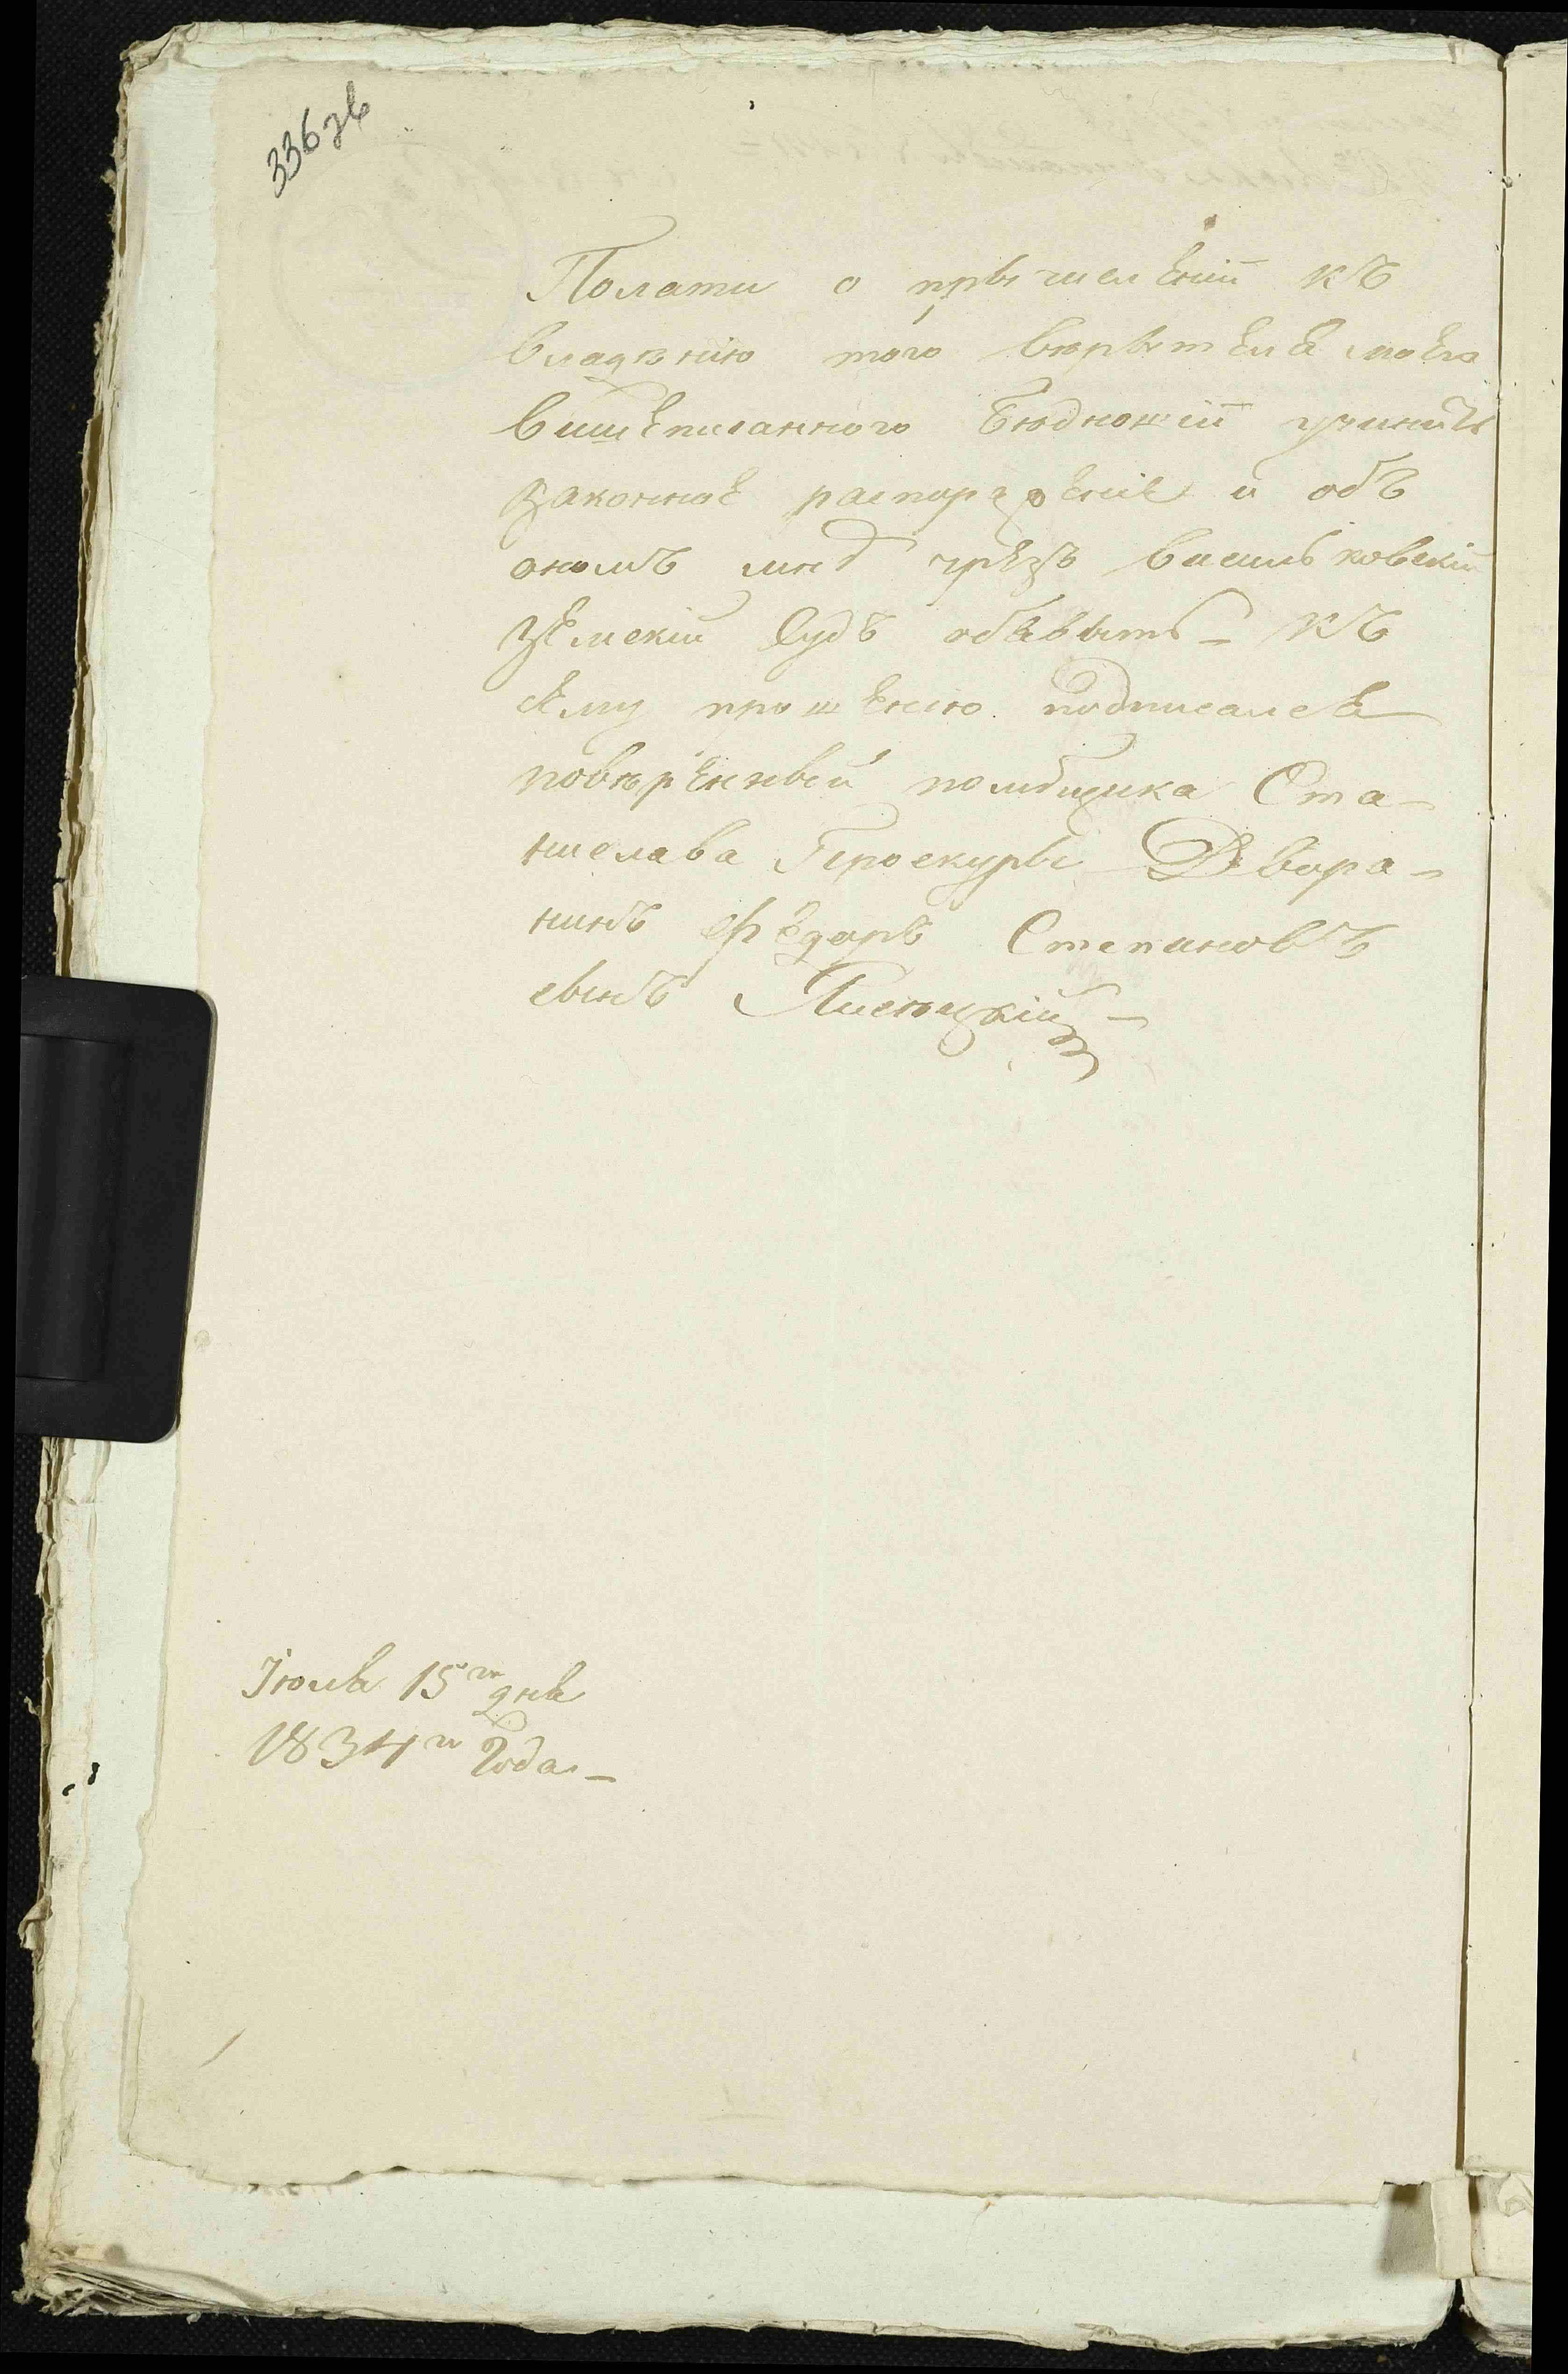 336 зв
Полати о прычислѣніи къ
владѣнію того вѣрытеля моего
вишеписанного Бюдножіи учинить
законное распоряженіе и объ
ономъ мнѣ чрезъ Васильковскій
Земскій Судъ объявыть – къ
сему прошенію подписался
повѣренный помѣщика Ста-
нислава Проскуры Дворя-
нинъ Федоръ Степановъ
сынъ
Іюля 15го дня
1834го Года –